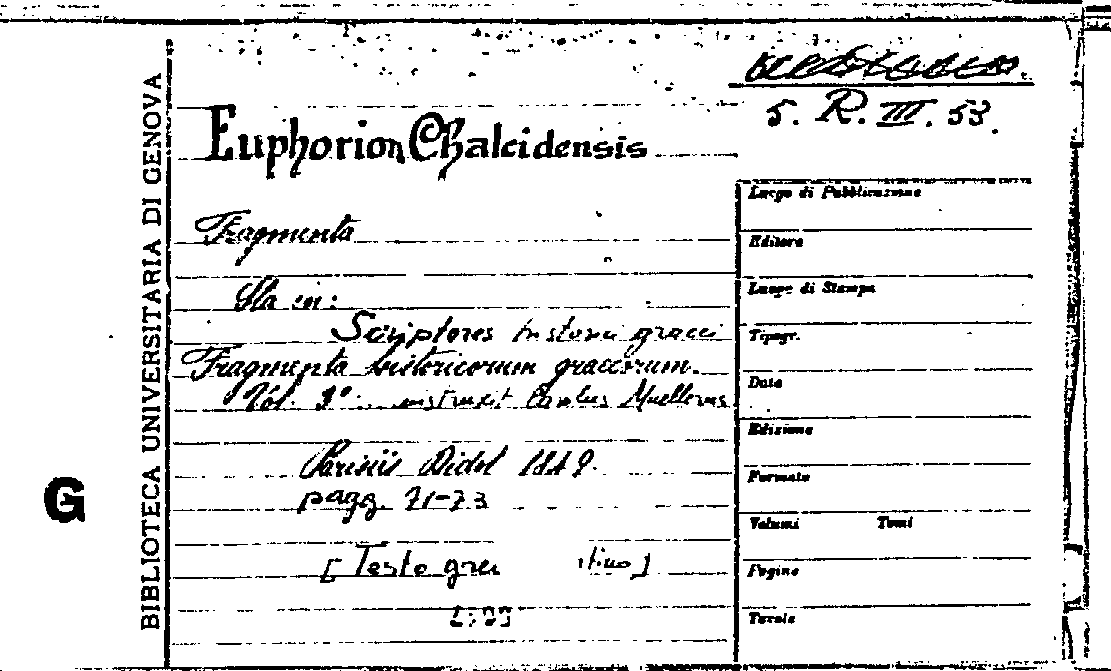 5. R. III. 53.
Euphorion Chalcidensis
Fragmenta
Sta in:
Scriptores graeci
Fragmenta historicorum graecorum.
Vol. 3° instruxit Carolus Muellerus
Parisiis Didot 1849.
pagg. 71-73
[Testo
BIBLIOTECA UNIVERSITARIA DI GENOVA
G
Luogo di Pubblicazione
Editore
Luogo di Stampa
Tipogr.
Data
Edizione
Formato
Volumi Tomi
Pagine
Tavole